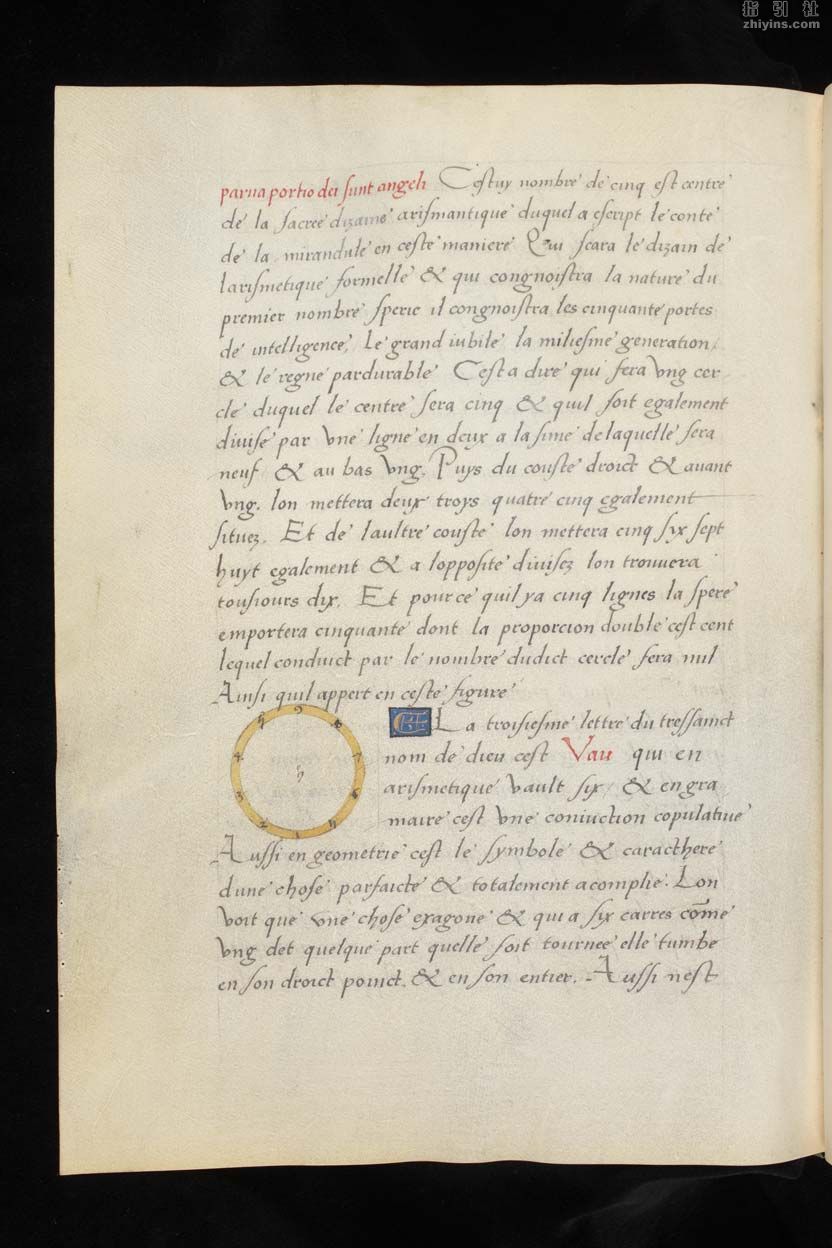 指引社
zhiyins.com
parua portio dei sunt angeli Cestuy nombre de cinq est centre
de la sacree dizaine arismantique duquel a escript le conte
de la mirandule en ceste maniere Qui scara le dizain de
larismetique formelle & qui congnoistra la nature du
premier nombre speric il congnoistra les cinquante portes
de intelligence, le grand iubile la miliesme generation,
& le regne pardurable Cest a dire qui fera vng cer
cle duquel le centre sera cinq & quil soit egalement
diuise par vne ligne en deux a la sime de laquelle sera
neuf & au bas vng. Puys du couste droict & auant
vng. lon mettera deux troys quatre cinq egalement
situez. Et de laultre couste lon mettera cinq six sept
huyt egalement & a lopposite diuisez lon trouuera
tousiours dix. Et pource quil ya cinq lignes la spere
emportera cinquante dont la proporcion double cest cent
lequel conduict par le nombre dudict cercle fera mil
Ainsi quil appert en ceste figure
5 9 8
4 7
5
3 6
2 1
La troisiesme lettre du tressainct
nom de dieu cest Vau qui en
arismetique vault six, & en gra
maire cest vne coniuction copulatiue
Aussi en geometrie cest le symbole & caracthere
dune chose parfaicte & totalement acomplie. Lon
voit que vne chose exagone & qui a six carres cōme
vng det quelque part quelle soit tournee elle tumbe
en son droict poinct. & en son entier. Aussi nest